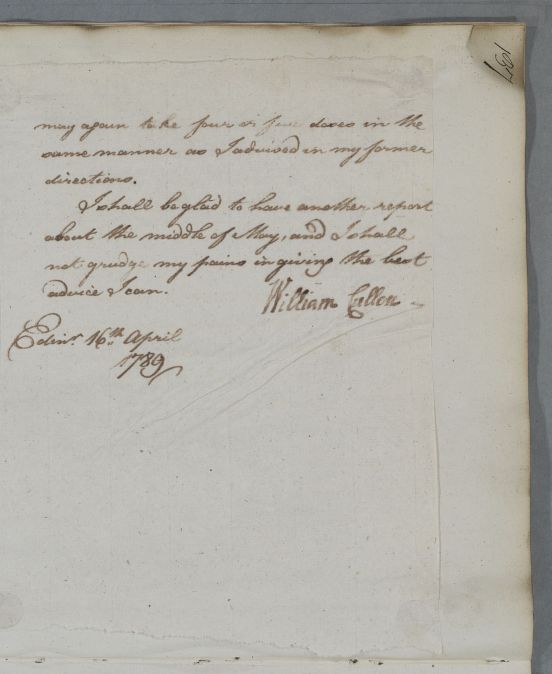 187
may again take four or five doses in the
same manner as I advised in my former
directions.
I shall be glad to have another report
about the middle of May, and I shall
not grudge my pains in giving the best
advice I can.
William Cullen
Edinr. 16th April
1789